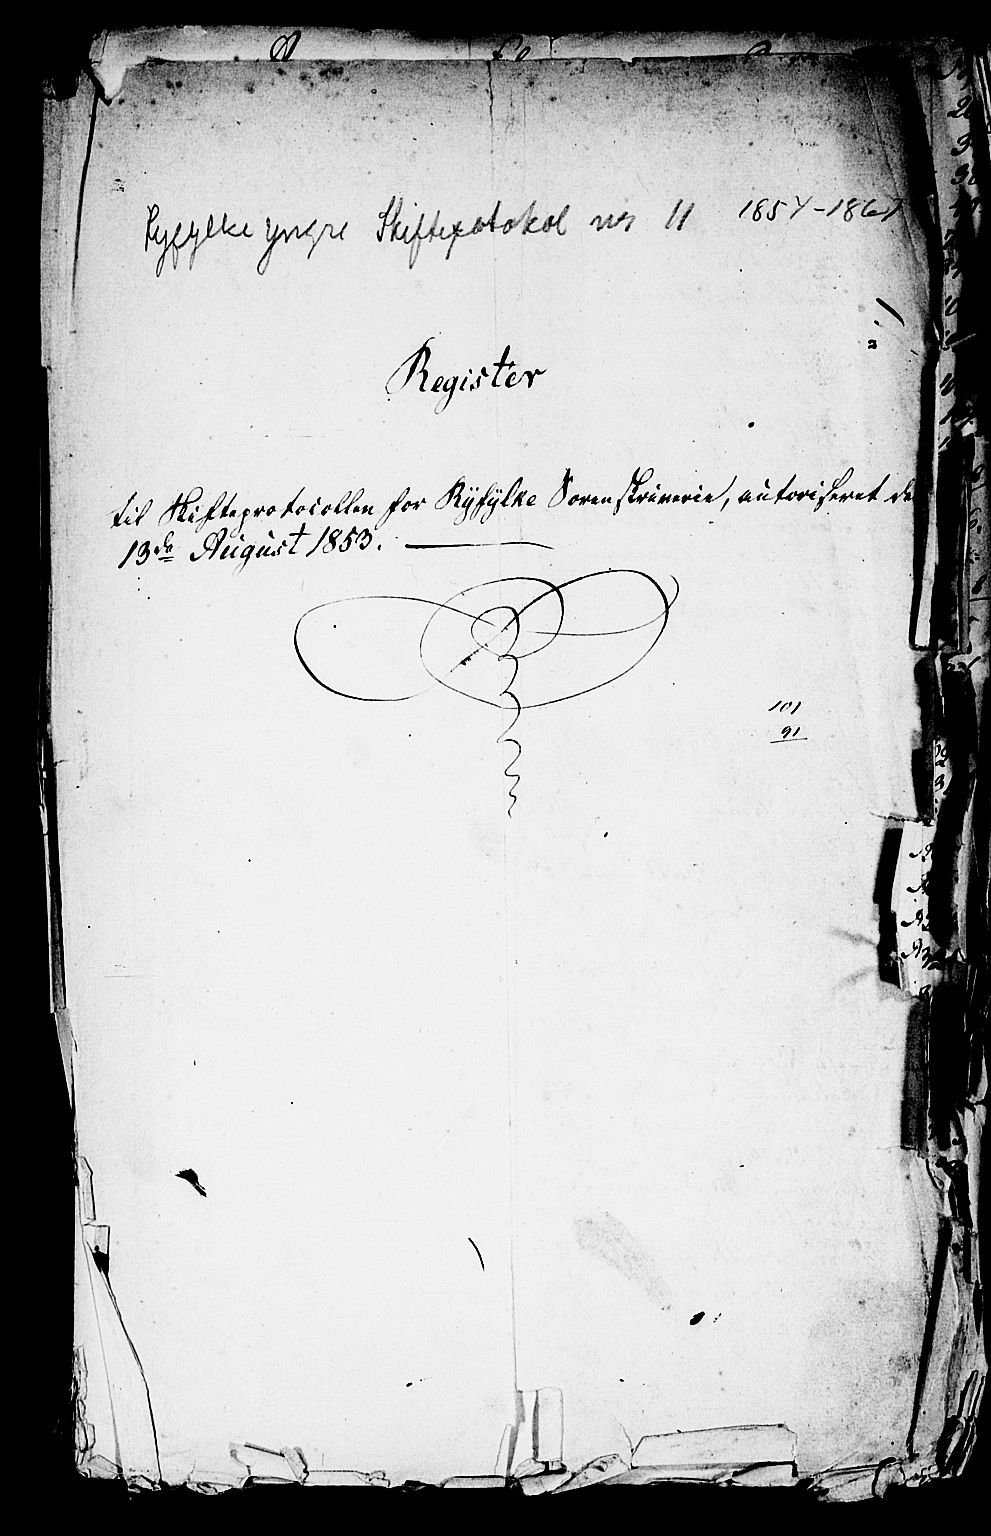 Ryfylke yngre Skifteprotokol nr 11 1854-1867
Register
til Skifteprotocollen for Ryfylke Sorenskriverie, autoriseret de
13de August 1853.
101
91